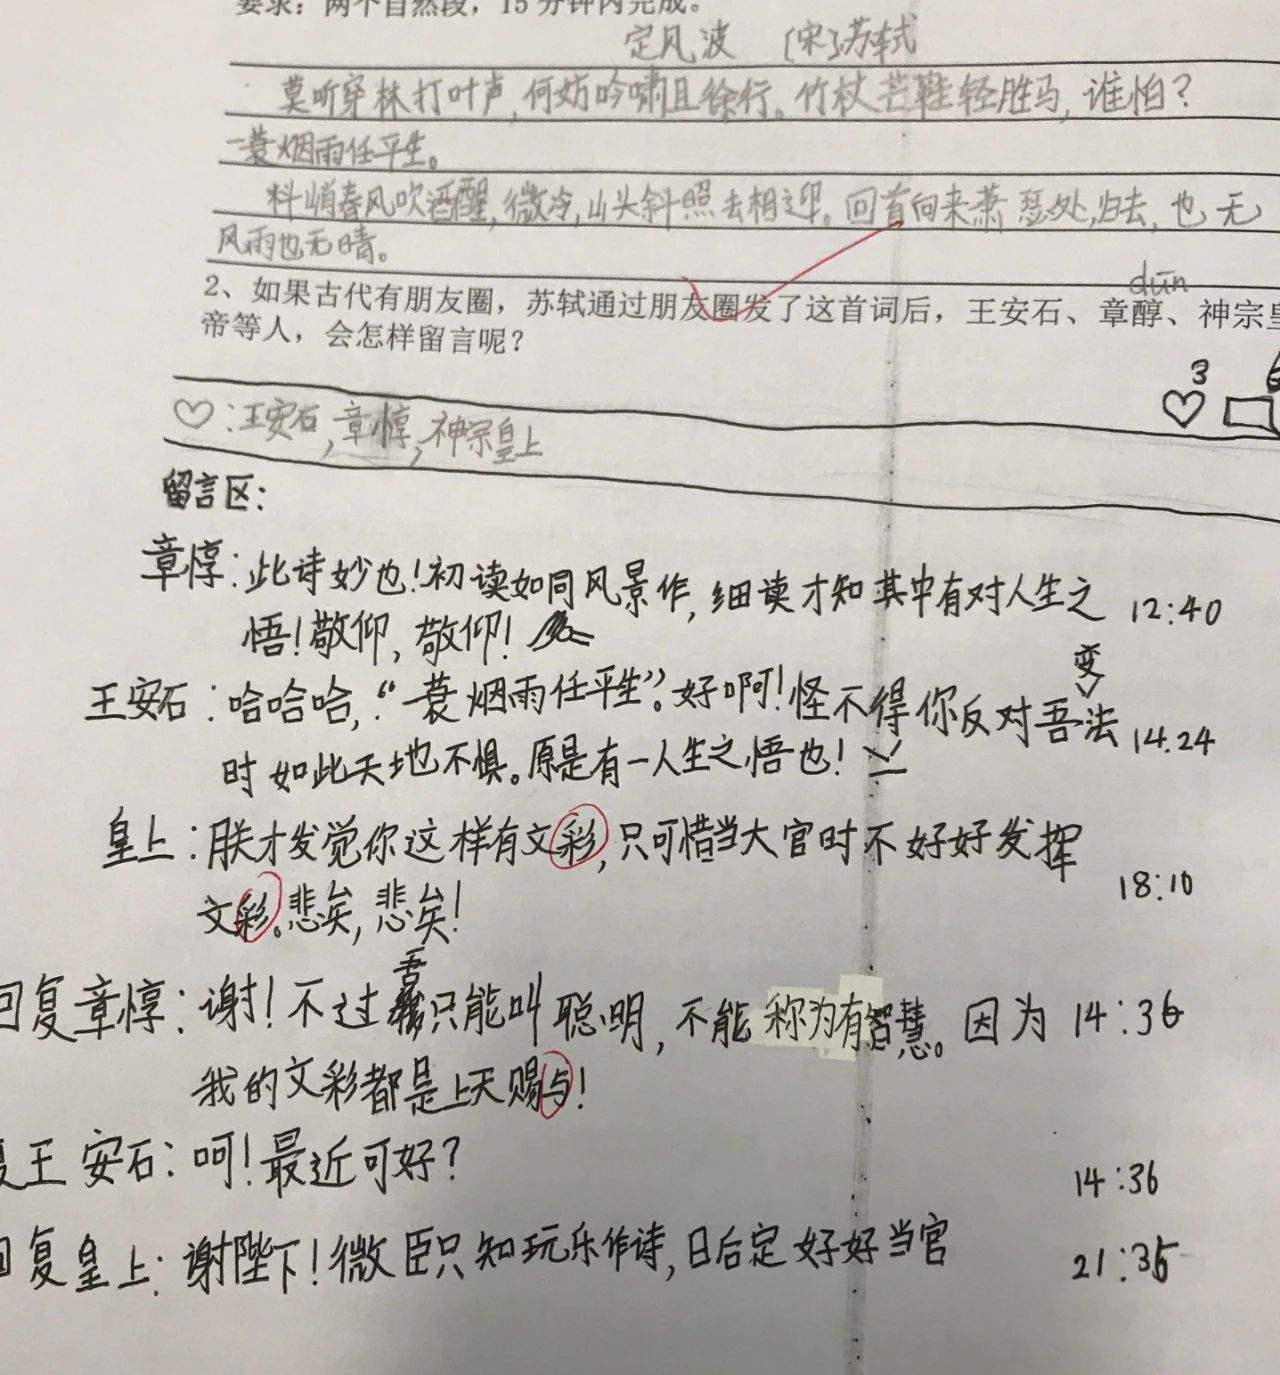 要求：两个自然段，15分钟内完成。
定风波 [宋]苏轼
莫听穿林打叶声，何妨吟啸且徐行。竹杖芒鞋轻胜马，谁怕？
一蓑烟雨任平生。
料峭春风吹酒醒，微冷，山头斜照去相迎。回首向来萧瑟处，归去，也无
风雨也无晴。
dūn
2、如果古代有朋友圈，苏轼通过朋友圈发了这首词后，王安石、章醇、神宗皇
帝等人，会怎样留言呢？
3
♡：王安石，章惇，神宗皇上
留言区：
章惇：此诗妙也！初读如同风景作，细读才知其中有对人生之 12:40
悟！敬仰，敬仰！
王安石：哈哈哈，“一蓑烟雨任平生”。好啊！怪不得你反对吾变法 14.24
时如此天地不惧。原是有一人生之悟也！
皇上：朕才发觉你这样有文彩，只可惜当大官时不好好发挥 18:10
文彩。悲矣，悲矣！
回复章惇：谢！不过吾只能叫聪明，不能称为有智慧。因为 14:36
我的文彩都是上天赐与！
复王安石：呵！最近可好？ 14:36
回复皇上：谢陛下！微臣只知玩乐作诗，日后定好好当官 21:35